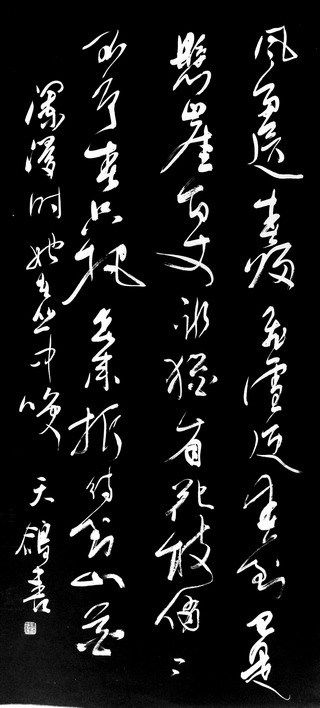 風雨送春歸飛雪迎春到已是
懸崖百丈冰猶有花枝俏々
也不争春只把春来报待到山花
爛漫时她在丛中笑 天鴿書